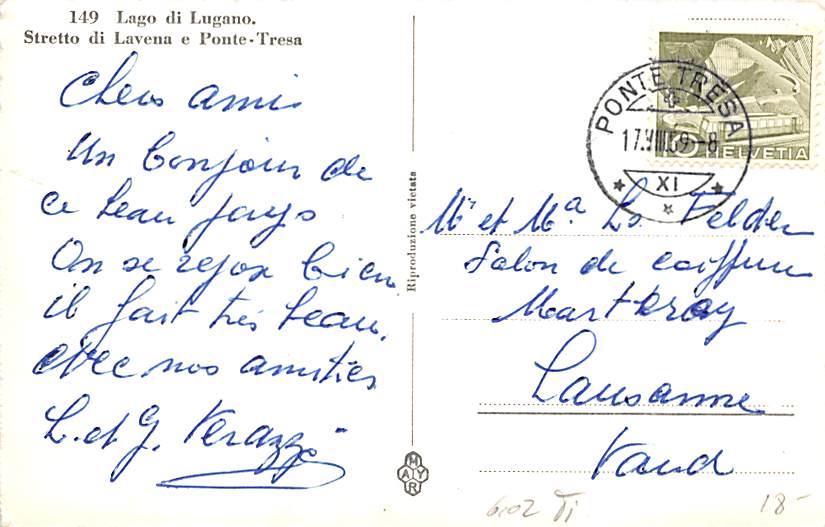 149 Lago di Lugano.
Stretto di Lavena e Ponte-Tresa
Chers amis
Un bonjour de
ce beau pays
On se repose bien
il fait très beau.
avec nos amitiés
L. et G. Verazzi
Riproduzione vietata
MAYR
PONTE TRESA
17.VIII.59-8
XI
HELVETIA
Mr et Ma Ls. Felder
Salon de coiffure
Martheray
Lausanne
Vaud
6102 Ti
18-